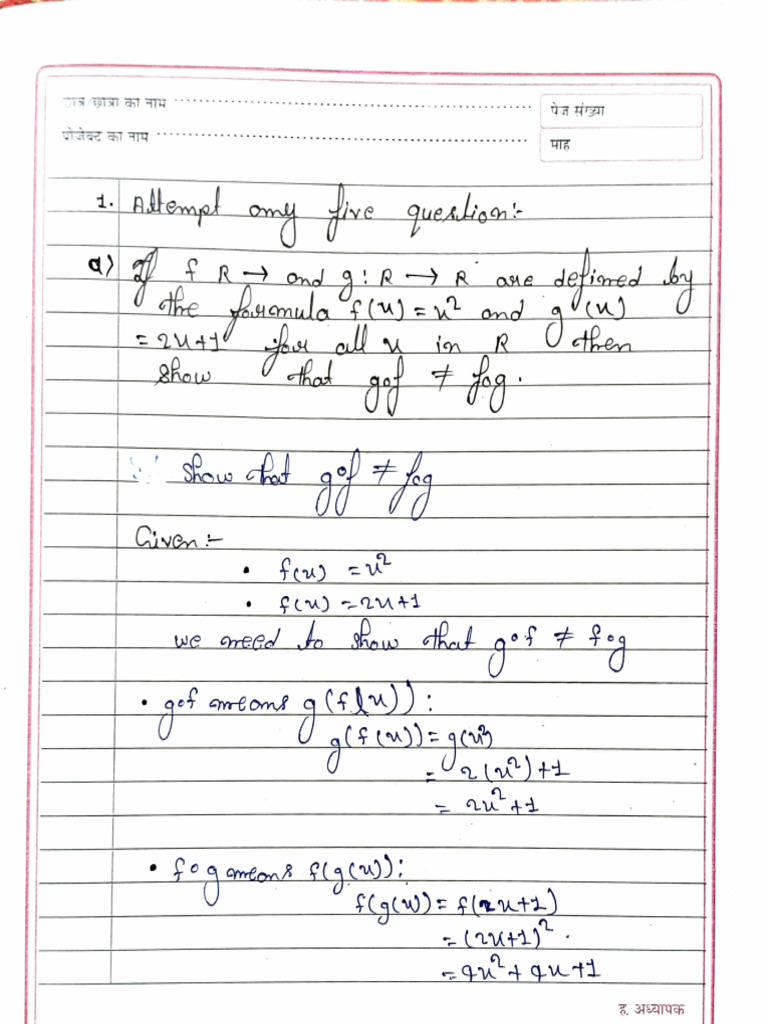 छात्र/छात्रा का नाम
पेज संख्या
प्रोजेक्ट का नाम
माह
1. Attempt any five question:-
a) If f R → and g: R → R are defined by
the formula f(x) = x² and g(x)
= 2x+1 for all x in R then
show that gof ≠ fog.
show that gof ≠ fog
Given:-
• f(x) = x²
• f(x) = 2x+1
we need to show that gof ≠ fog
• gof means g(f(x)):
g(f(x)) = g(x²)
= 2(x²)+1
= 2x²+1
• fog means f(g(x)):
f(g(x)) = f(2x+1)
= (2x+1)².
= 4x²+4x+1
ह. अध्यापक